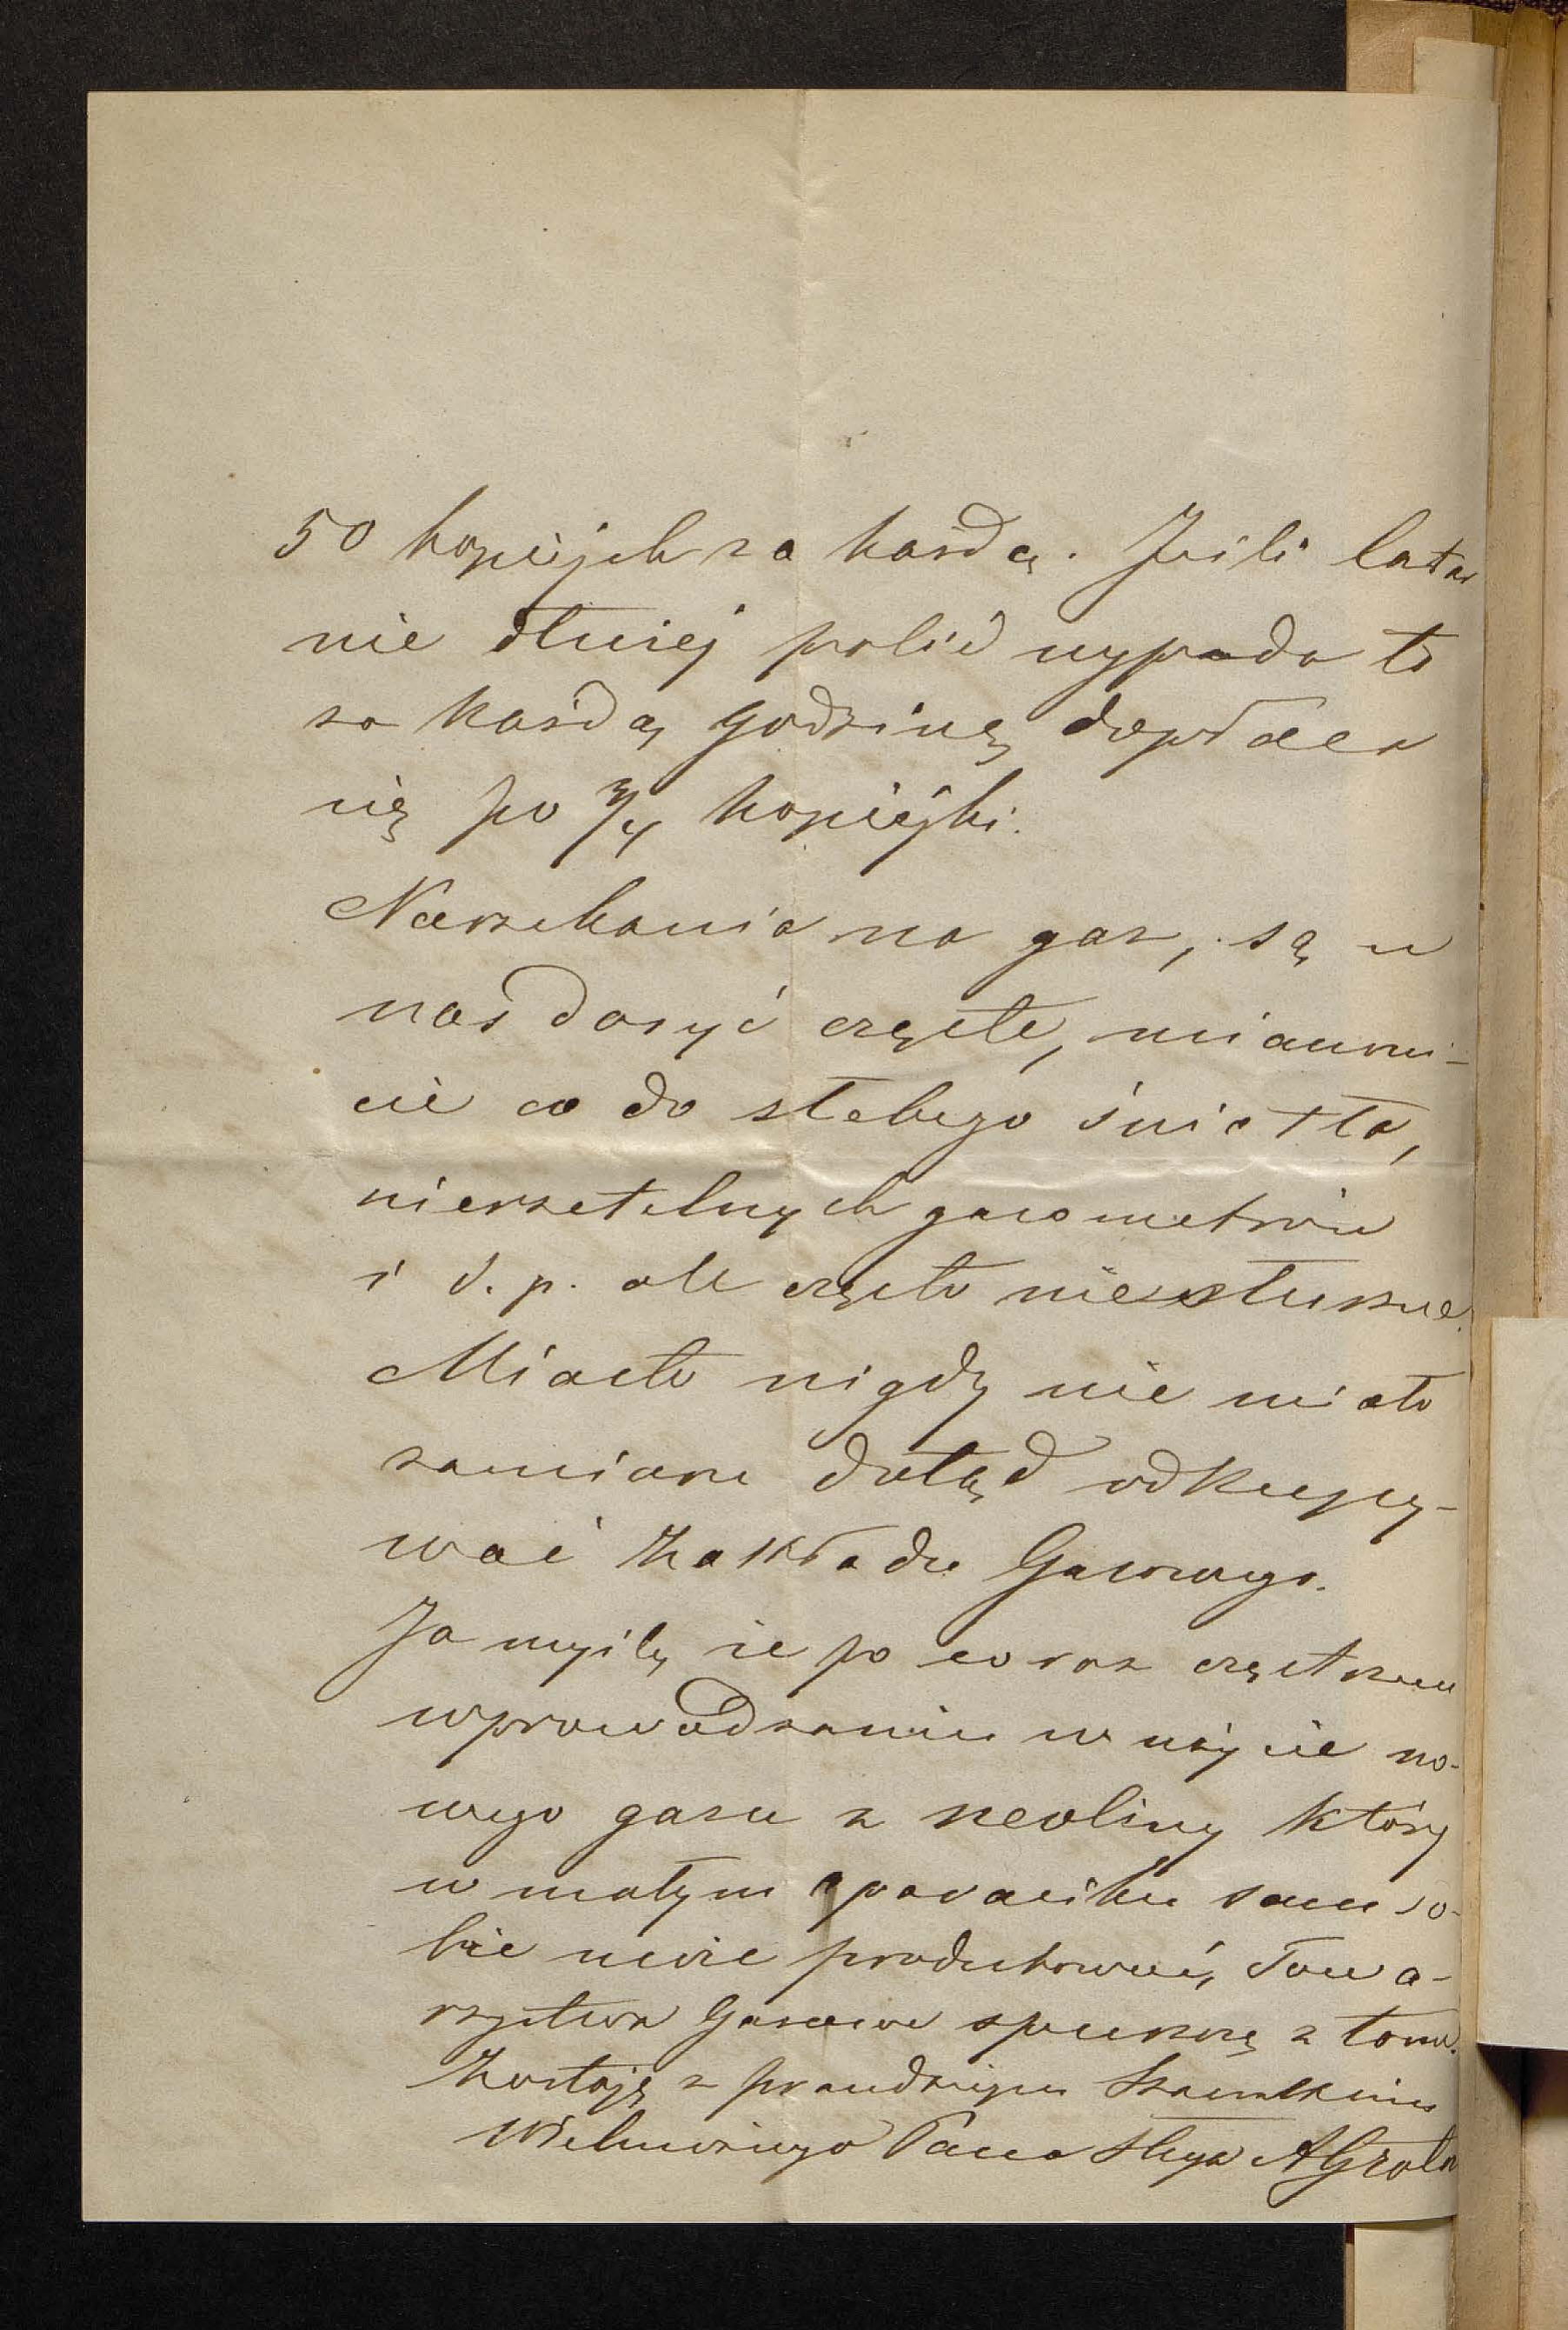 50 kopiejek za każdą. Jeśli latar
nie dłużej palić wypada to
za każdą godzinę dopłaca
się po 3/4 kopiejki.
Narzekania na gaz, są u
nas dosyć częste, mianowi-
cie co do słabego światła,
nierzetelnych gazometrów
i t. p. ale często niesłuszne.
Miasto nigdy nie miało
zamiaru dotąd odkupy-
wać Zakładu Gazowego.
Ja myślę że po coraz częstszem
wprowadzaniu w użycie no-
wego gazu z neoliny który
w małym aparaciku sam so-
bie może produkować, Towa-
rzystwa Gazowe spuszczą z tonu.
Zostaję z prawdziwym Szacunkiem
Wielmożnego Pana Sługa